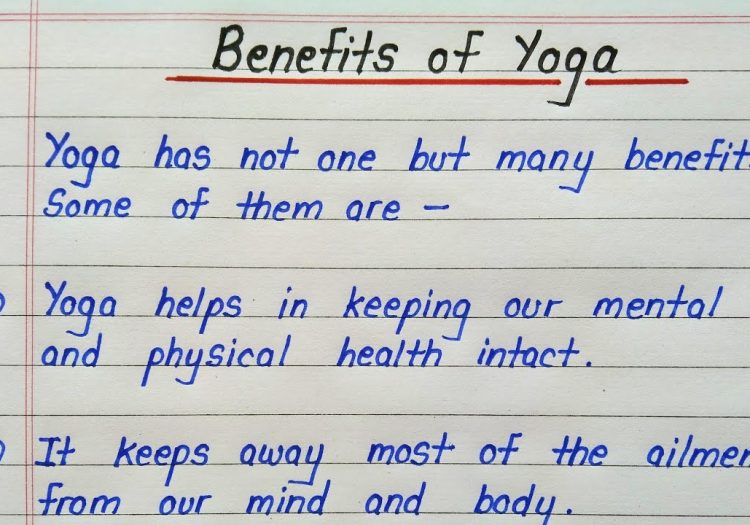 Benefits of Yoga
Yoga has not one but many benefit
Some of them are –
Yoga helps in keeping our mental
and physical health intact.
It keeps away most of the ailmen
from our mind and body.